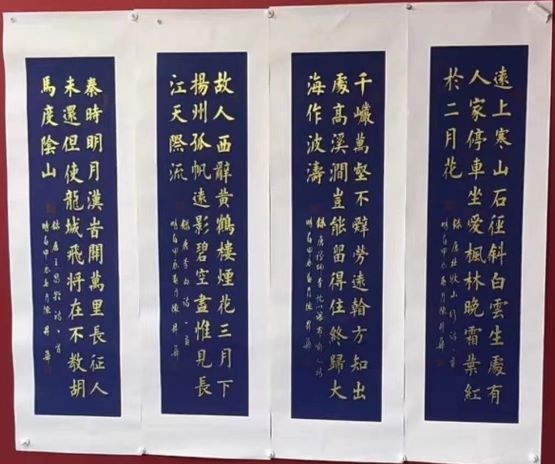 遠上寒山石徑斜白雲生處有
人家停車坐愛楓林晚霜葉紅
於二月花
錄唐杜牧山行詩一首
時在甲辰春月陳
千巖萬壑不辭勞遠方知出
處高溪澗豈能留得住終歸大
海作波濤
時在甲辰春月陳
故人西辭黃鶴樓煙花三月下
揚州孤帆遠影碧空盡惟見長
江天際流
錄唐李白詩一首
時在甲辰春月陳
秦時明月漢旹關萬里長征人
未還但使龍城飛將在不教胡
馬度陰山
錄唐王昌齡詩一首
時在甲辰春月陳